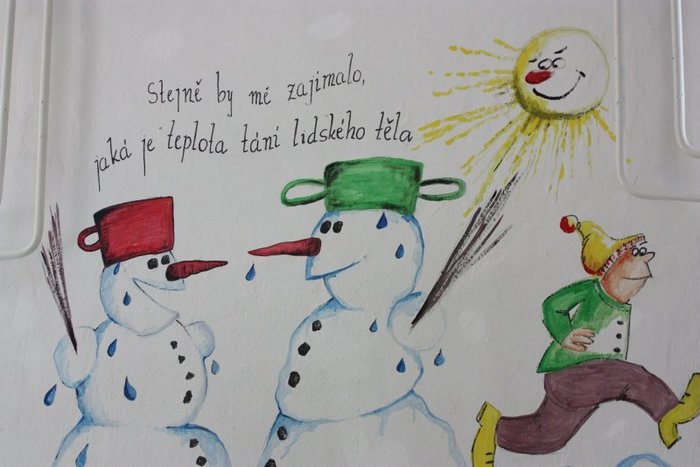 Stejně by mě zajímalo,
jaká je teplota tání lidského těla